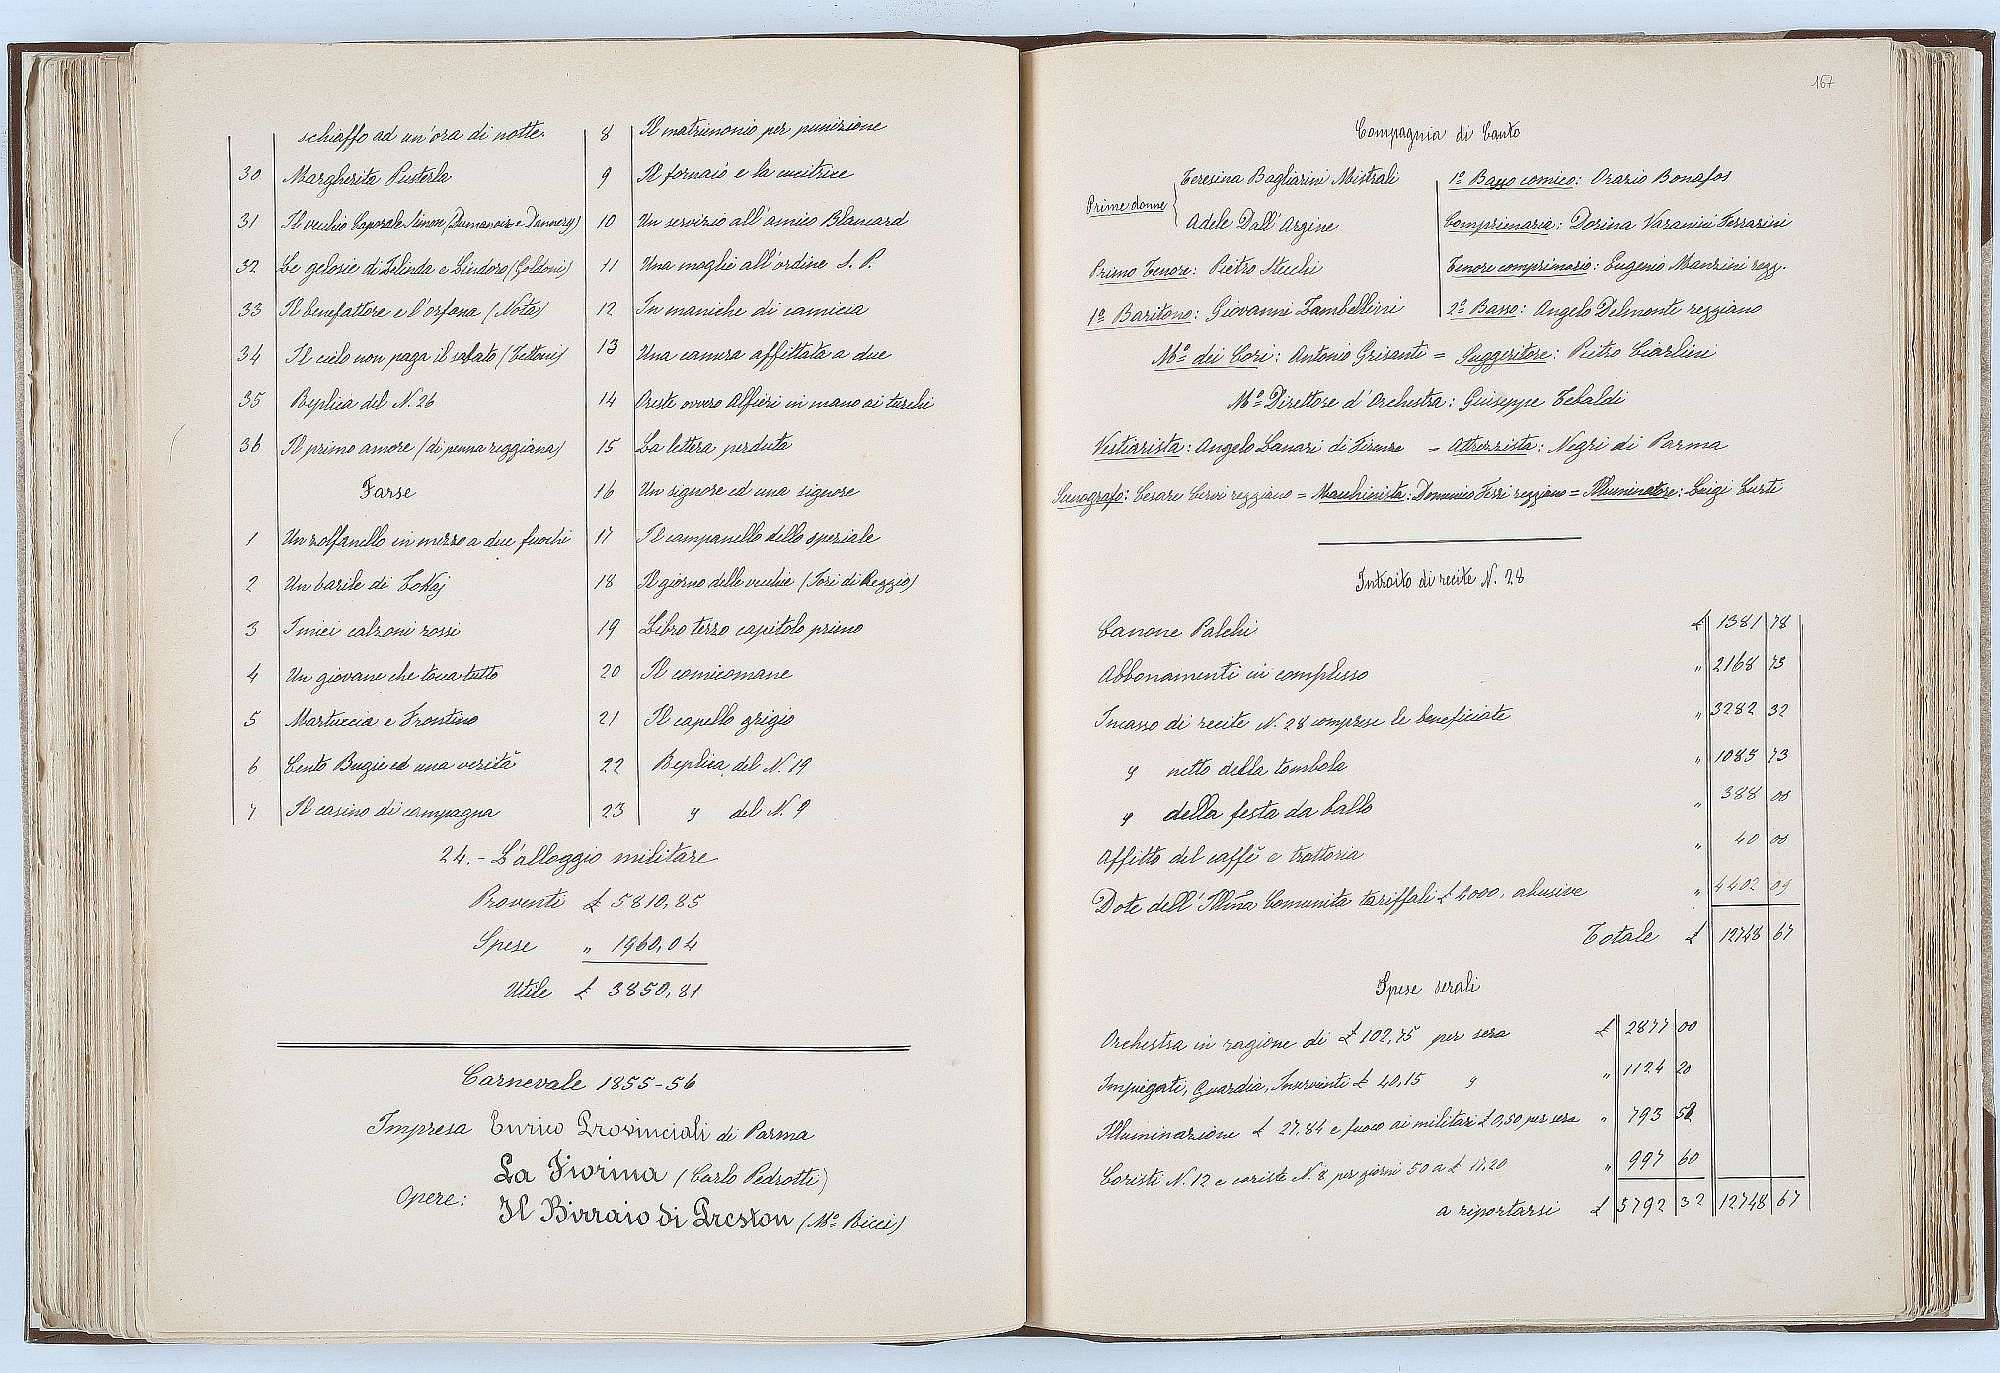 schiaffo ad un'ora di notte.
30 Margherita Pusterla
31 Il vecchio Caporale Simon (Dumanoir e Dennery)
32 Le gelosie di Zelinda e Lindoro (Goldoni)
33 Il benefattore e l'orfana (Nota)
34 Il cielo non paga il sabato (Tettoni)
35 Replica del N. 26
36 Il primo amore (di penna reggiana)
Farse
1 Un zolfanello in mezzo a due fuochi
2 Un barile di Tokaj
3 I miei calzoni rossi
4 Un giovane che toca tutto
5 Martuccia e Frontino
6 Cento Bugie ed una verità
7 Il casino di campagna
8 Il matrimonio per punizione
9 Il fornaio e la cucitrice
10 Un servizio all'amico Blancard
11 Una moglie all'ordine S. P.
12 In maniche di camicia
13 Una camera affittata a due
14 Oreste ovvero Alfieri in mano ai turchi
15 La lettera perduta
16 Un signore ed una signore
17 Il campanello dello speziale
18 Il giorno delle vecchie (Tori di Reggio)
19 Libro terzo capitolo primo
20 Il comicomane
21 Il capello grigio
22 Replica del N. 19
23 " del N. 9
24.- L'alloggio militare
Proventi £ 5810,85
Spese " 1960,04
Utile £ 3850,81
Carnevale 1855-56
Impresa Enrico Provinciali di Parma
Opere: La Fiorina (Carlo Pedrotti)
Il Birraio di Preston (Mo Ricci)
167
Compagnia di Canto
Prime donne { Teresina Bagliarini Mistrali
Adele Dall'Argine
Primo Tenore: Pietro Stecchi
1o Baritono: Giovanni Zambellini
1o Basso comico: Orazio Bonafos
Comprimaria: Dorina Varanini Ferrarini
Tenore comprimario: Eugenio Manzini regg.
2o Basso: Angelo Delmonte reggiano
Mo dei Cori: Antonio Grisanti = Suggeritore: Pietro Ciarlini
Mo Direttore d'Orchestra: Giuseppe Tebaldi
Vestiarista: Angelo Lanari di Firenze = Attrezzista: Negri di Parma
Scenografo: Cesare Cervi reggiano = Macchinista: Domenico Ferri reggiano = Illuminatore: Luigi Curti
Introito di recite N. 28
Canone Palchi £ 1381 78
Abbonamenti in complesso " 2168 73
Incasso di recite N. 28 comprese le beneficiate " 3282 32
" netto della tombola " 1085 73
" della festa da ballo " 388 00
Affitto del caffè e trattoria " 40 00
Dote dell'Illma Comunità tariffali £ 4000, abusive " 4402 09
Totale £ 12748 67
Spese serali
Orchestra in ragione di £ 102,75 per sera £ 2877 00
Impiegati, Guardia, Inservienti £ 40,15 " " 1124 20
Illuminazione £ 27.84 e fuoco ai militari £ 0,50 per sera " 793 52
Coristi N. 12 e coriste N. 8 per giorni 50 a £ 17.20 " 997 60
a riportarsi £ 5792 32 12748 67